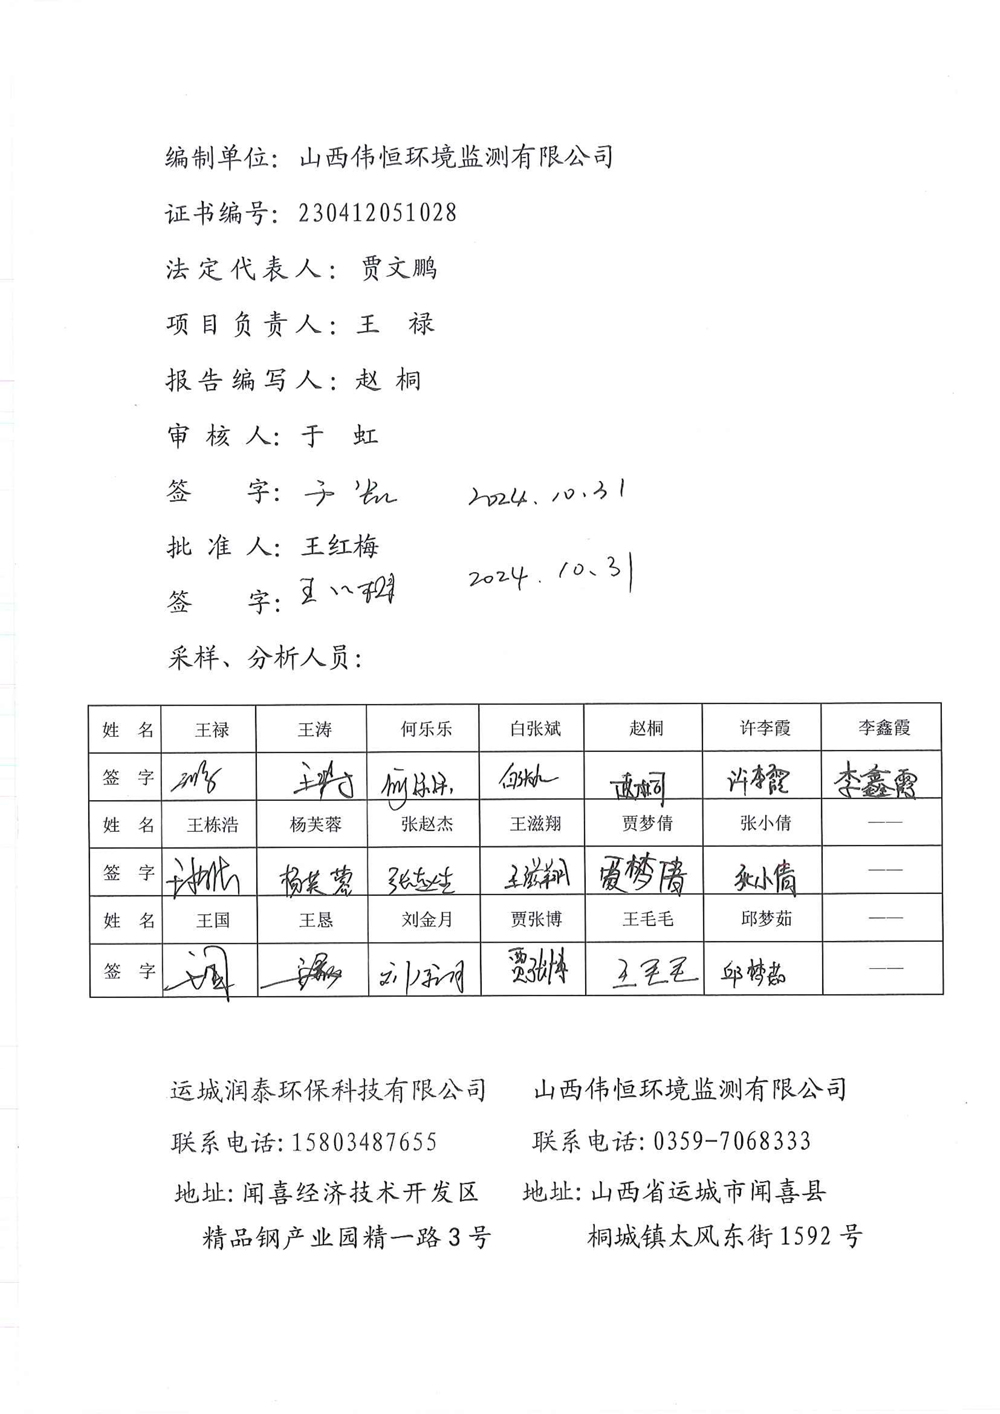 编制单位：山西伟恒环境监测有限公司
证书编号：230412051028
法定代表人：贾文鹏
项目负责人：王 禄
报告编写人：赵 桐
审核人：于 虹
签 字： 2024.10.31
批准人：王红梅
签 字： 2024.10.31
采样、分析人员：
姓 名 王禄 王涛 何乐乐 白张斌 赵桐 许李霞 李鑫霞
签 字 何乐乐 许李霞 李鑫霞
姓 名 王栋浩 杨芙蓉 张赵杰 王滋翔 贾梦倩 张小倩 ——
签 字 杨芙蓉 王滋翔 贾梦倩 张小倩 ——
姓 名 王国 王恳 刘金月 贾张博 王毛毛 邱梦茹 ——
签 字 王国 贾张博 王毛毛 邱梦茹 ——
运城润泰环保科技有限公司 山西伟恒环境监测有限公司
联系电话：15803487655 联系电话：0359-7068333
地址：闻喜经济技术开发区 地址：山西省运城市闻喜县
精品钢产业园精一路3号 桐城镇太风东街1592号